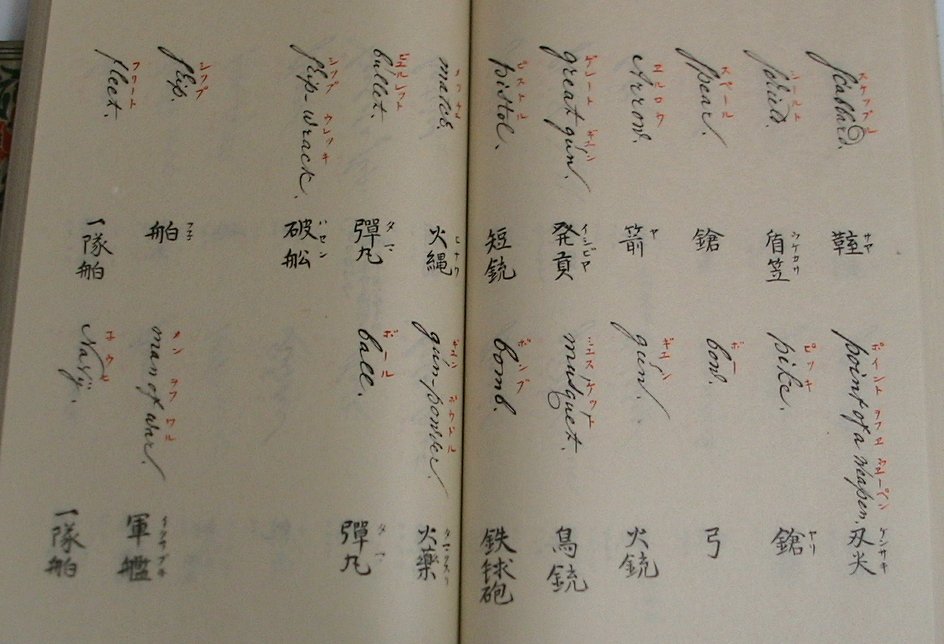 scabbard.
サヤ
ポイント ヲフ エ ウエーペン
point of a weapen.
ケンサキ
刄尖
シールト
shield.
盾笠
ピッキ
pike.
ヤリ
鎗
スペール
spear.
鎗
ボー
bow.
弓
エルロウ
Arrow.
ヤ
箭
ギュン
gun.
火銃
ゲレート ギュン
great gun.
イシビヤ
発貢
ミュスケット
musquet.
鳥銃
ピストル
pistol.
短銃
ボンブ
bomb.
鉄球砲
match.
ヒナワ
火縄
ギュン ポウドル
gun-powder.
タマクスリ
火藥
ビュルレット
bullet.
タマ
彈丸
ボール
ball.
タマ
彈丸
シップ ウレッキ
ship-wrack.
ハセン
破舩
シップ
ship.
フネ
舶
メン ヲフ ワル
man of war.
イクサブネ
軍艦
フリート
fleet.
一隊舶
Navy.
一隊舶